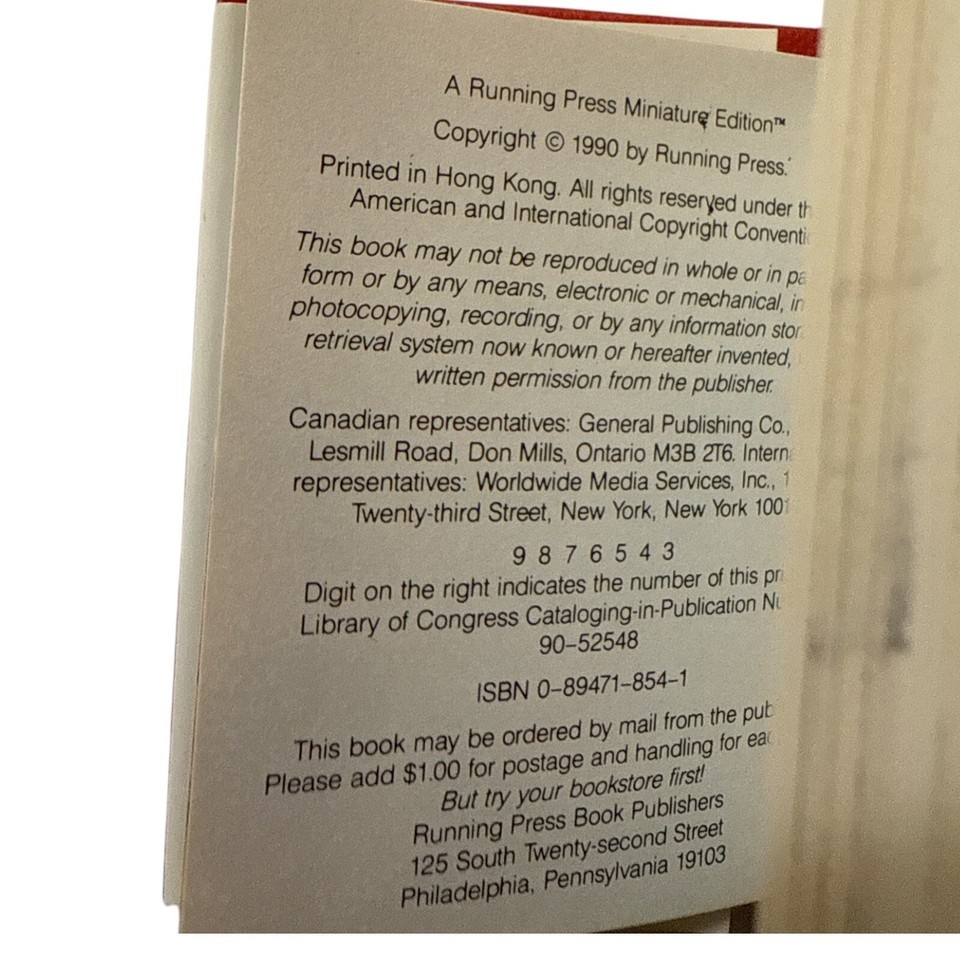 A Running Press Miniature Edition™
Copyright © 1990 by Running Press.
Printed in Hong Kong. All rights reserved under th
American and International Copyright Conventi
This book may not be reproduced in whole or in pa
form or by any means, electronic or mechanical, in
photocopying, recording, or by any information stor
retrieval system now known or hereafter invented,
written permission from the publisher.
Canadian representatives: General Publishing Co.,
Lesmill Road, Don Mills, Ontario M3B 2T6. Intern
representatives: Worldwide Media Services, Inc., 1
Twenty-third Street, New York, New York 100
9 8 7 6 5 4 3
Digit on the right indicates the number of this pri
Library of Congress Cataloging-in-Publication Nu
90–52548
ISBN 0–89471–854–1
This book may be ordered by mail from the pub
Please add $1.00 for postage and handling for eac
But try your bookstore first!
Running Press Book Publishers
125 South Twenty-second Street
Philadelphia, Pennsylvania 19103